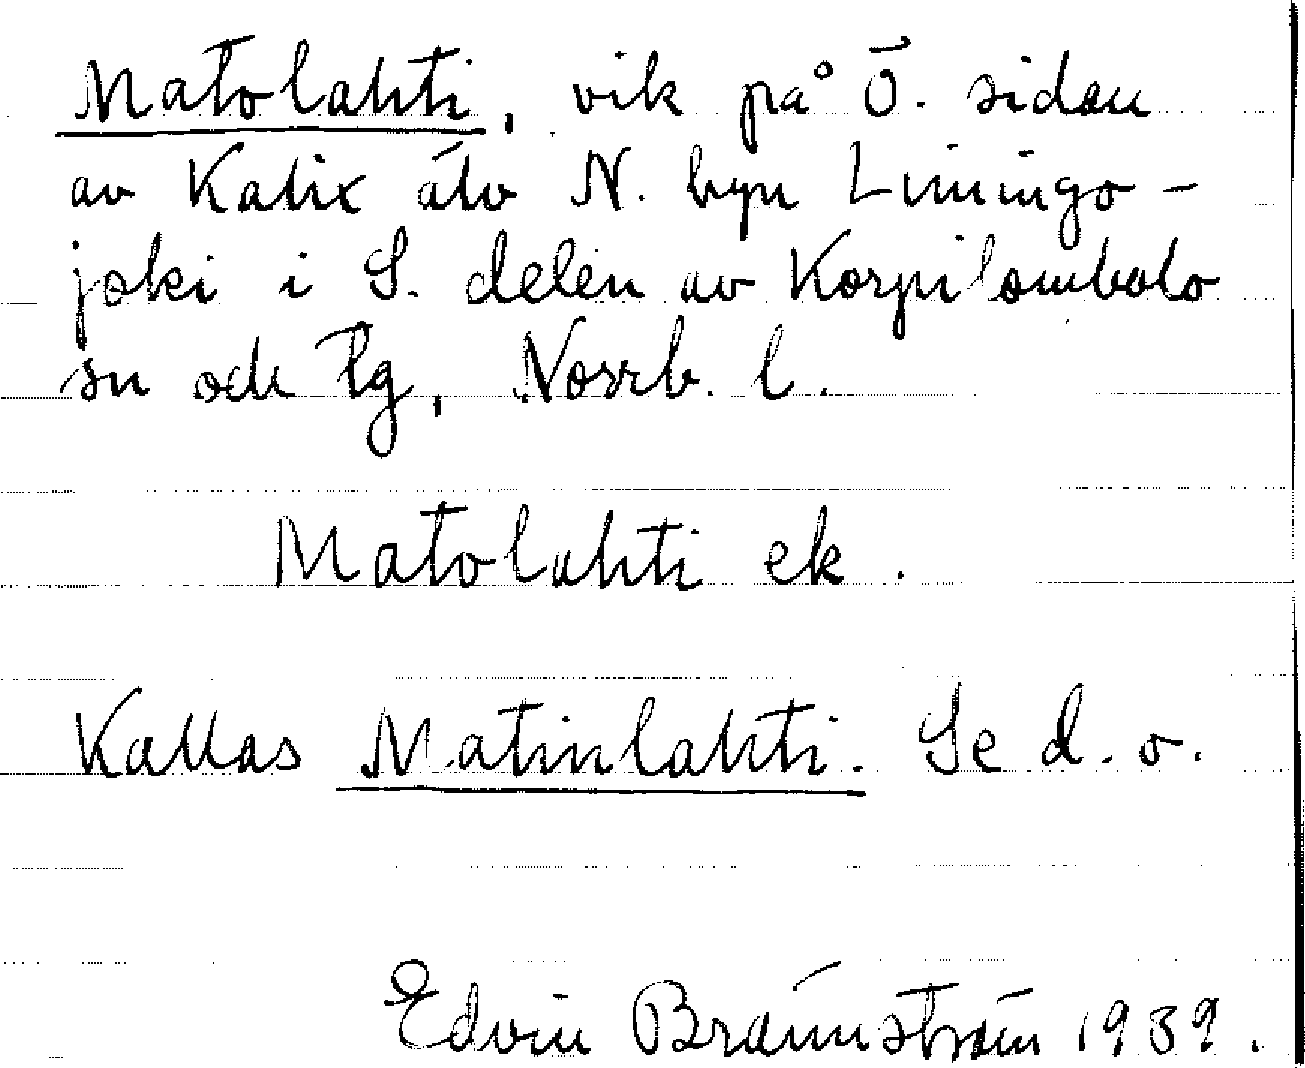 Matolahti, vik på Ö. sidan
av Kalix älv N. byn Liningo-
joki i S. delen av Korpilombolo
sn och tg, Norrb. l.
Matolahti ek.
Kallas Matinlahti. Se d. o.
Edvin Brännström 1939.